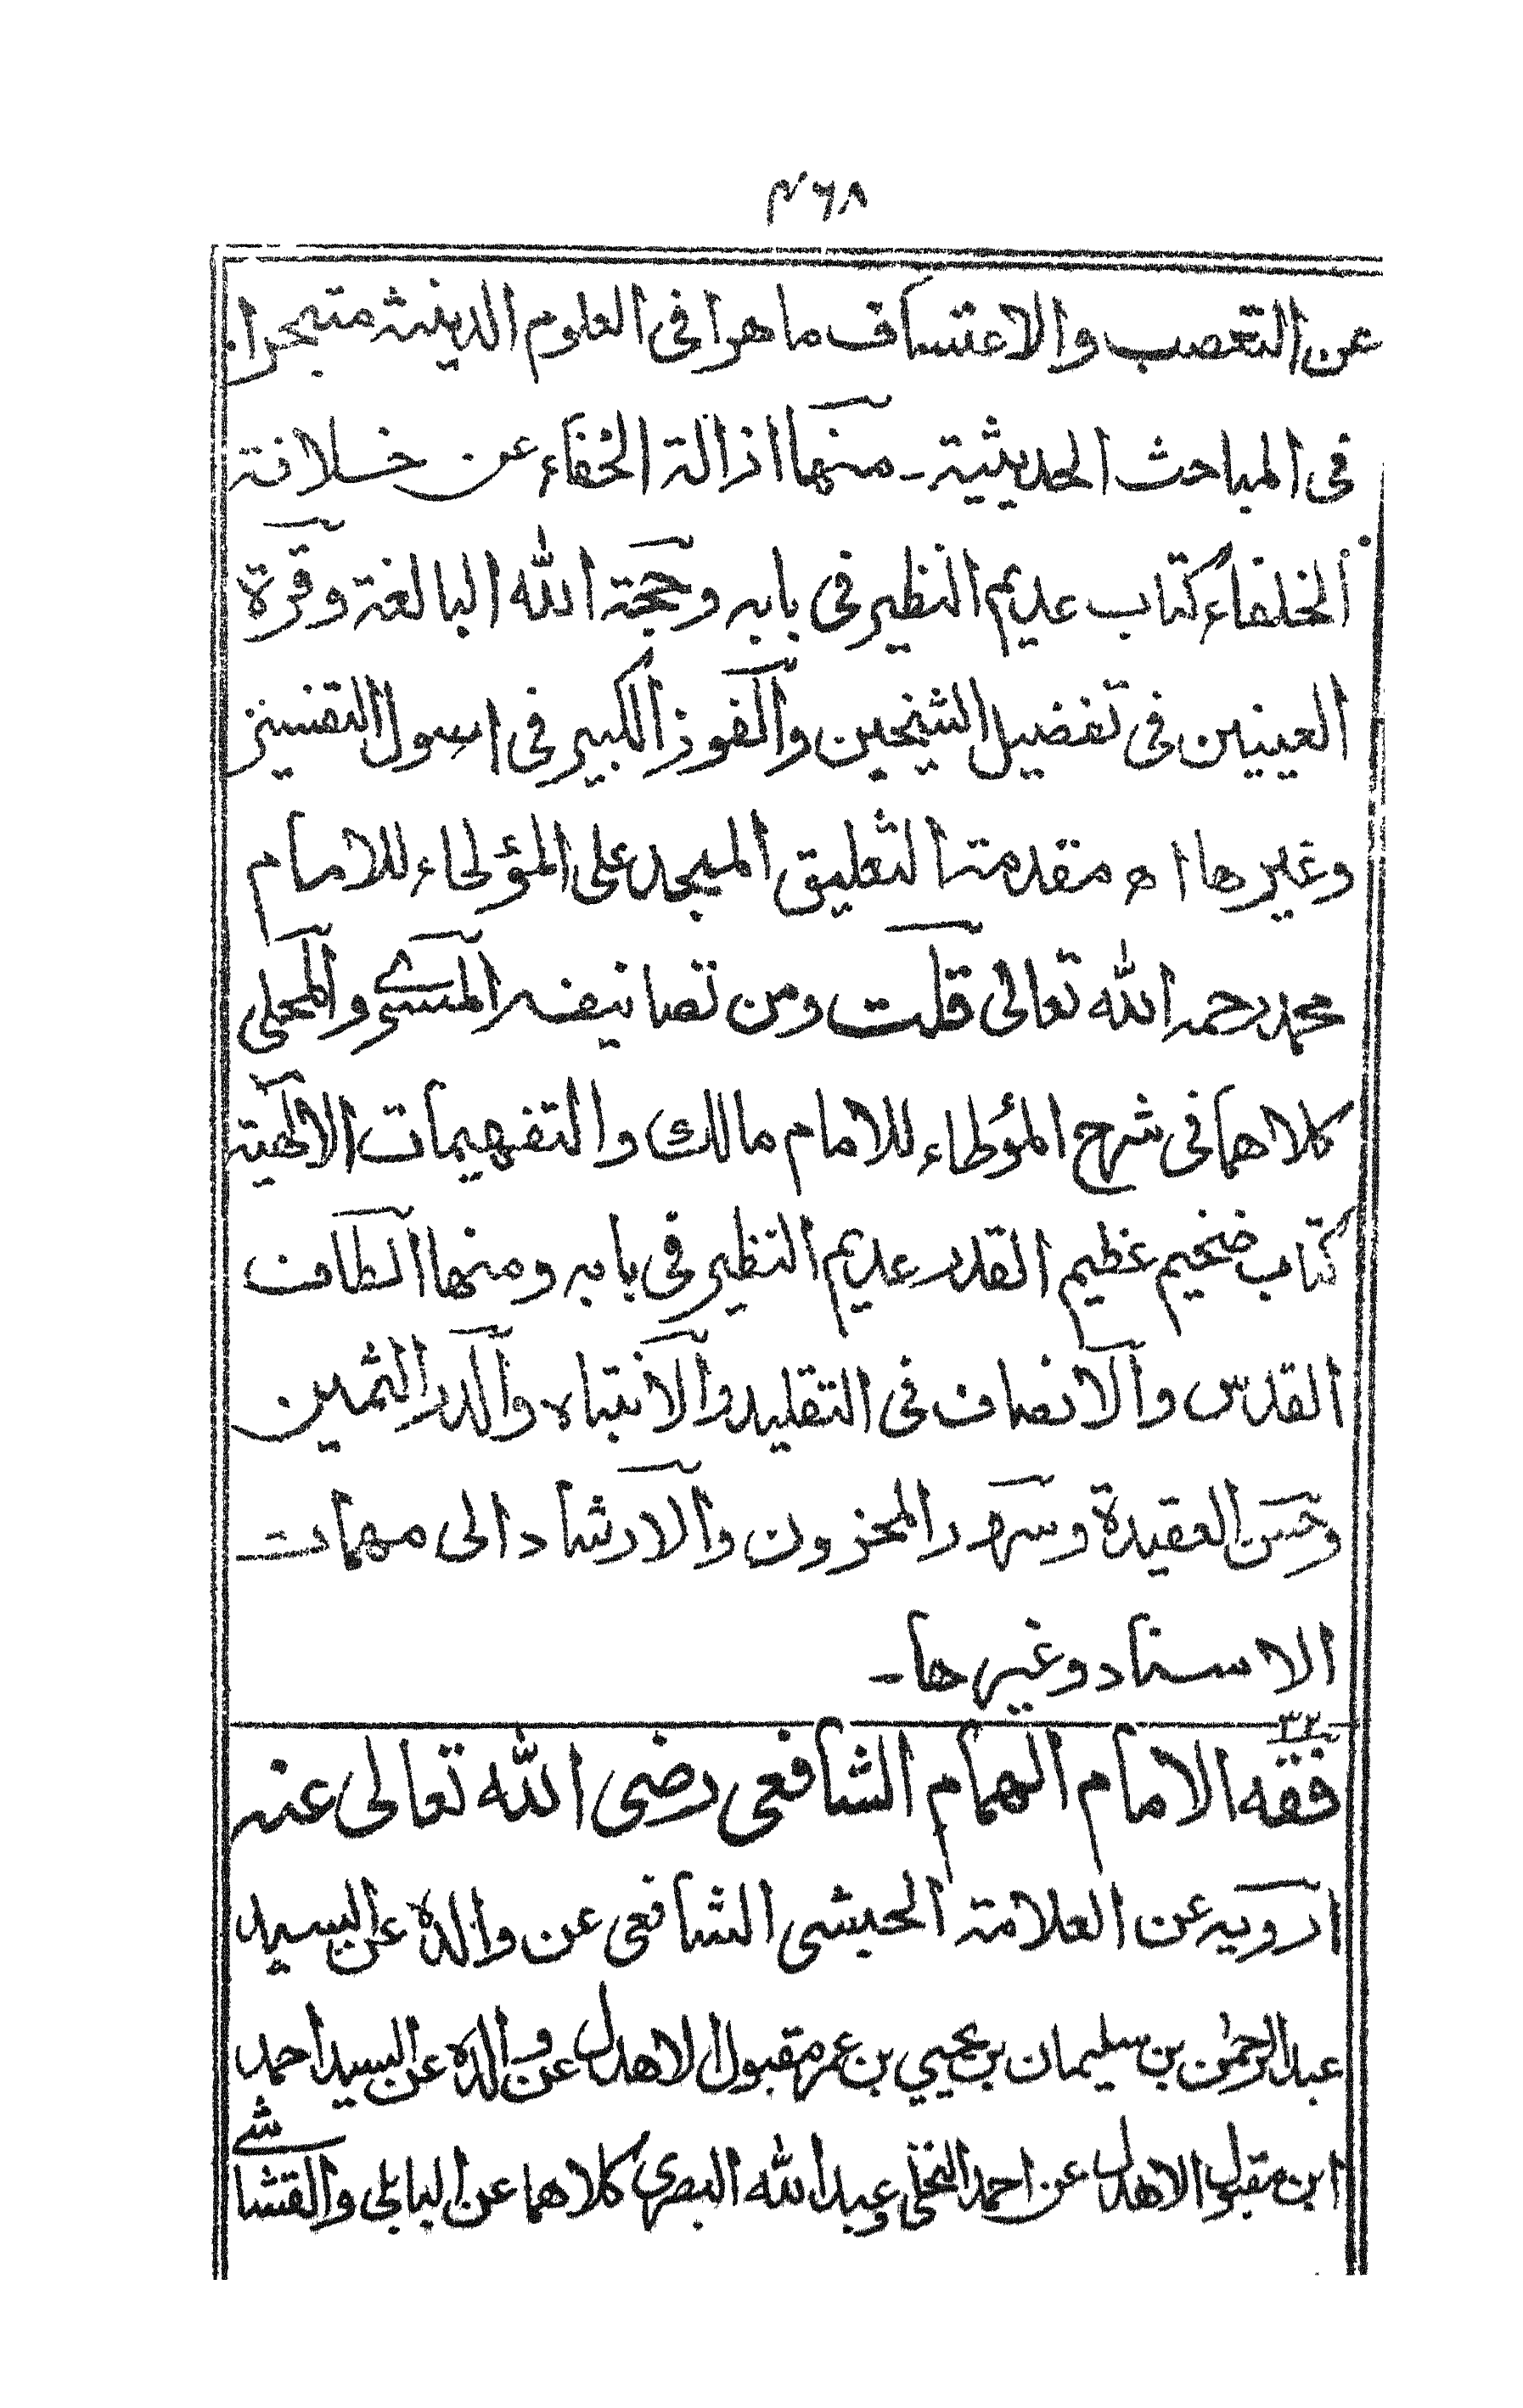 ٤٦٨
عن التعصب والاعتساف ماهرا فى العلوم الدينية متبحرا
فى المباحث الحديثية ـ منها ازالة الخفاء عن خلافة
الخلفاء كتاب عديم النظير فى بابه وحجة الله البالغة وقرة
العينين فى تفضيل الشيخين والفوز الكبير فى اسول التفسير
وغيرها اه مقدمة التعليق الممجد على المؤطاء للامام
محمد رحمه الله تعالى قلت ومن تصانيفه المسوى والمحلى
كلاهما فى شرح المؤطاء للامام مالك والتفهيمات الالهية
كتاب ضخيم عظيم القدر عديم النظير فى بابه ومنها الطاف
القدس والانصاف فى التقليد والانتباه والدر الثمين
وحسن العقيدة وسرور المحزون والارشاد الى مهمات
الاسناد وغيرها ـ
٣٢
فقه الامام الهمام الشافعى رضى الله تعالى عنه
ارويه عن العلامة الحبشى الشافعى عن والده عن السيد
عبد الرحمن بن سليمان بن يحيي بن عمر مقبول الاهدل عن والده عن السيد احمد
ابن مقبول الاهدل عن احمد النخلى وعبد الله البصرى كلاهما عن البابلى والقشاشى